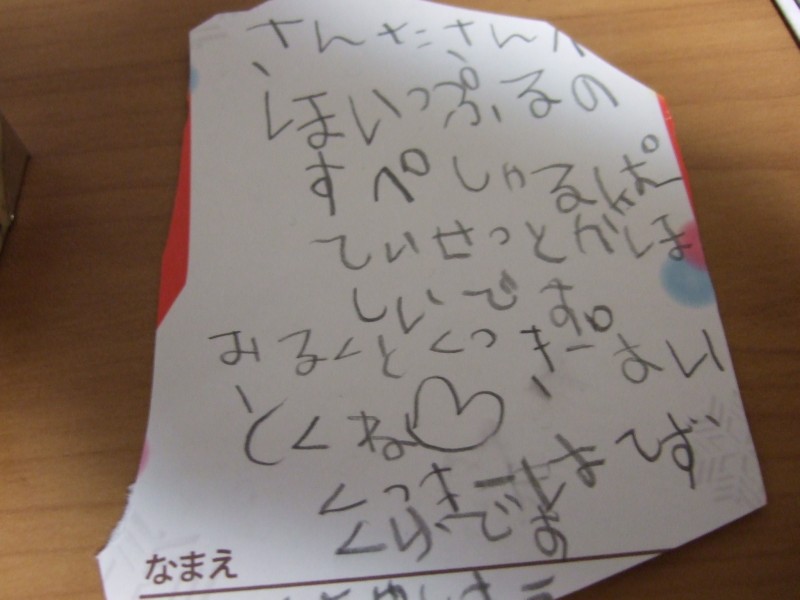 さんたさんへ
ほいっぷるの
すぺしゃるぱー
てぃせっとがほ
しいです。
みるくとくっきーおい
とくね♡
くっきーはてづ
くりです
なまえ